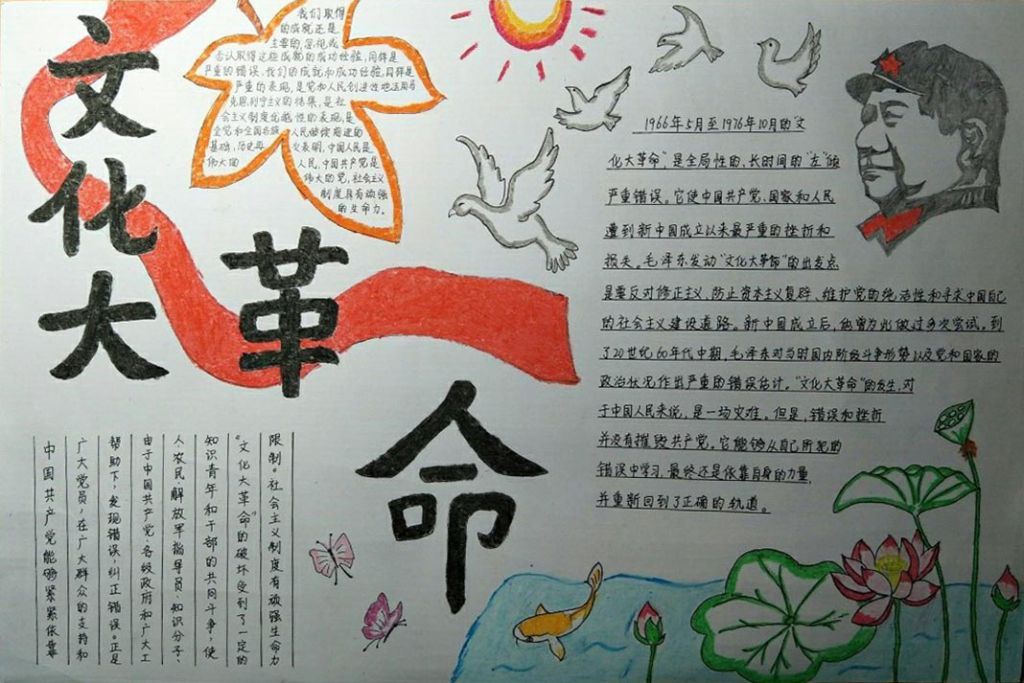 文化大
革
命
我们取得
的成就还是
主要的,忽视或
否认取得这些成就的成功经验,同样是
严重的错误,我们的成就和成功经验,同样是
严重的表现,是党和人民创造性地运用马
克思列宁主义的结果,是社
会主义制度优越性的表现,是
全党和全国各族人民继续前进的
基础,历史再次表明,中国人民是
伟大的人民,中国共产党是
伟大的党,社会主义
制度具有顽强
的生命力。
1966年5月至1976年10月的"文
化大革命",是全局性的,长时间的"左"倾
严重错误。它使中国共产党、国家和人民
遭到新中国成立以来最严重的挫折和
损失。毛泽东发动"文化大革命"的出发点
是要反对修正主义,防止资本主义复辟,维护党的纯洁性和寻求中国自己
的社会主义建设道路。新中国成立后,他曾为此做过多次尝试,到
了20世纪60年代中期,毛泽东对当时国内阶级斗争形势以及党和国家的
政治状况作出严重的错误估计。"文化大革命"的发生,对
于中国人民来说,是一场灾难。但是,错误和挫折
并没有摧毁共产党。它能够从自己所犯的
错误中学习,最终还是依靠自身的力量,
并重新回到了正确的轨道。
限制。社会主义制度有顽强生命力
"文化大革命"的破坏受到了一定的
知识青年和干部的共同斗争,使
人、农民、解放军指导员、知识分子、
由于中国共产党、各级政府和广大工
帮助下,发现错误,纠正错误。正是
广大党员,在广大群众的支持和
中国共产党能够紧紧依靠